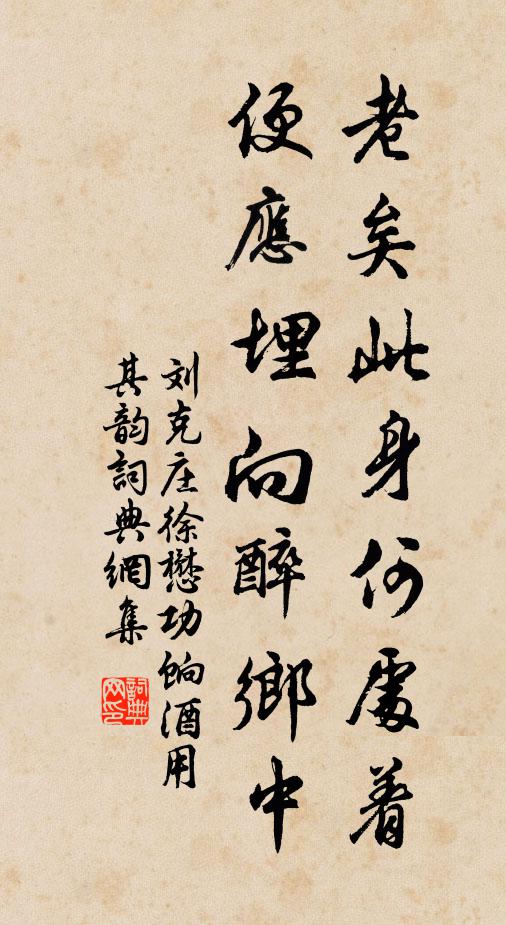 老矣此身何處着
便應埋向醉鄉中
刘克庄徐懋功餉酒用
其韵詞典網集
詞典
网印